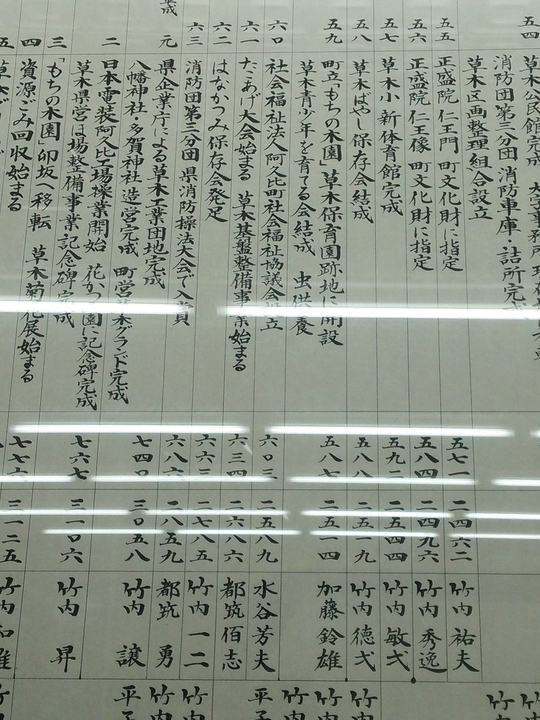 五四
草木公民館完成
消防団第三分団 消防車庫・詰所完成
草木区画整理組合設立
五五
正盛院 仁王門 町文化財に指定
五七一
二四六二
竹内 祐夫
五六
正盛院 仁王像 町文化財に指定
五八四
二四九六
竹内 秀逸
五七
草木小 新体育館完成
五九二
二五四四
竹内 敏弍
五八
草木ばやし保存会結成
五八八
二五一九
竹内 徳弍
五九
町立「もちの木園」草木保育園跡地に開設
五八七
二五一四
加藤 鈴雄
草木青少年を育てる会結成 虫供養
六〇
社会福祉法人阿久比町社会福祉協議会設立
六〇三
二五八九
水谷芳夫
六一
たこあげ大会始まる 草木基盤整備事業始まる
六三四
二六八六
都筑佰志
六二
はなかつみ保存会発足
六六三
二七八五
竹内 一二
六三
消防団第三分団 県消防操法大会で入賞
六八六
二八五九
都筑 勇
元
県企業庁による草木工業団地完成
八幡神社・多賀神社造営完成 町営草木グランド完成
七四〇
三〇五八
竹内 譲
二
日本電装阿久比工場操業開始 花かつみ園に記念碑完成
草木県営ほ場整備事業記念碑完成
七六七
三一〇六
竹内 昇
三
「もちの木園」卯坂へ移転 草木菊花展始まる
四
資源ごみ回収始まる
七七六
三一二五
竹内 和雄
五